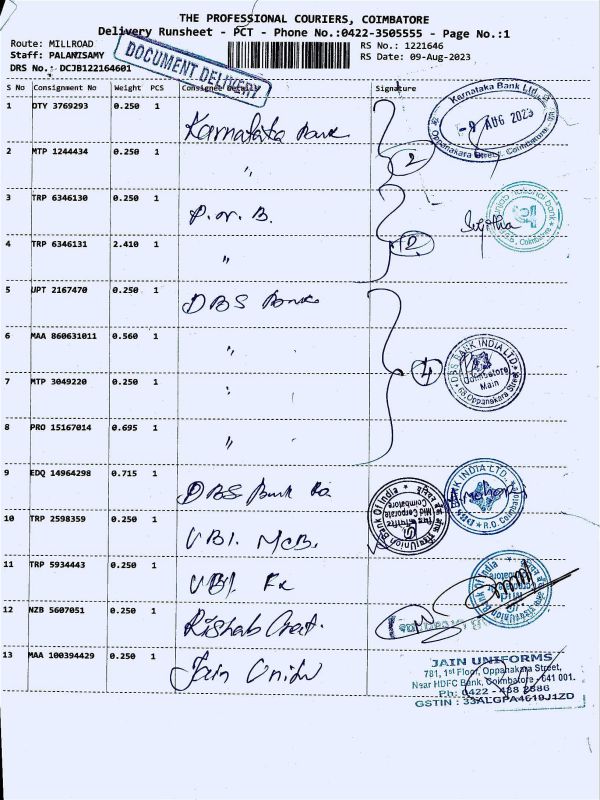 THE PROFESSIONAL COURIERS, COIMBATORE
Delivery Runsheet - PCT - Phone No.:0422-3505555 - Page No.:1
Route: MILLROAD
Staff: PALANISAMY
DRS No.: DCJB122164601
RS No.: 1221646
RS Date: 09-Aug-2023
DOCUMENT DELIVERY
S No Consignment No Weight PCS Consignee Details Signature
1 DTY 3769293 0.250 1 Karnataka Bank
Karnataka Bank Ltd.
-9 AUG 2023
Oppanakara Street, Coimbatore
2 MTP 1244434 0.250 1 "
2
3 TRP 6346130 0.250 1 P.N.B.
Sujitha
punjab national bank
Coimbatore
4 TRP 6346131 2.410 1 "
2
5 UPT 2167470 0.250 1 DBS Bank
6 MAA 860631011 0.560 1 "
4
DBS BANK INDIA LTD
Coimbatore
Main
Oppanakara Street
7 MTP 3049220 0.250 1 "
8 PRO 15167014 0.695 1 "
9 EDQ 14964298 0.715 1 DBS Bank
BANK INDIA LTD.
R.O. Coimbatore
Union Bank Of India
Mid Corporate
Coimbatore
10 TRP 2598359 0.250 1 UBI. MCB.
11 TRP 5934443 0.250 1 UBI
Union Bank of India
12 NZB 5607051 0.250 1 Rishab
13 MAA 100394429 0.250 1 Jain
JAIN UNIFORMS
781, 1st Floor, Oppanakara Street,
Near HDFC Bank, Coimbatore - 641 001.
Ph: 0422 - 438 2886
GSTIN : 33ALGPA4619J1ZD